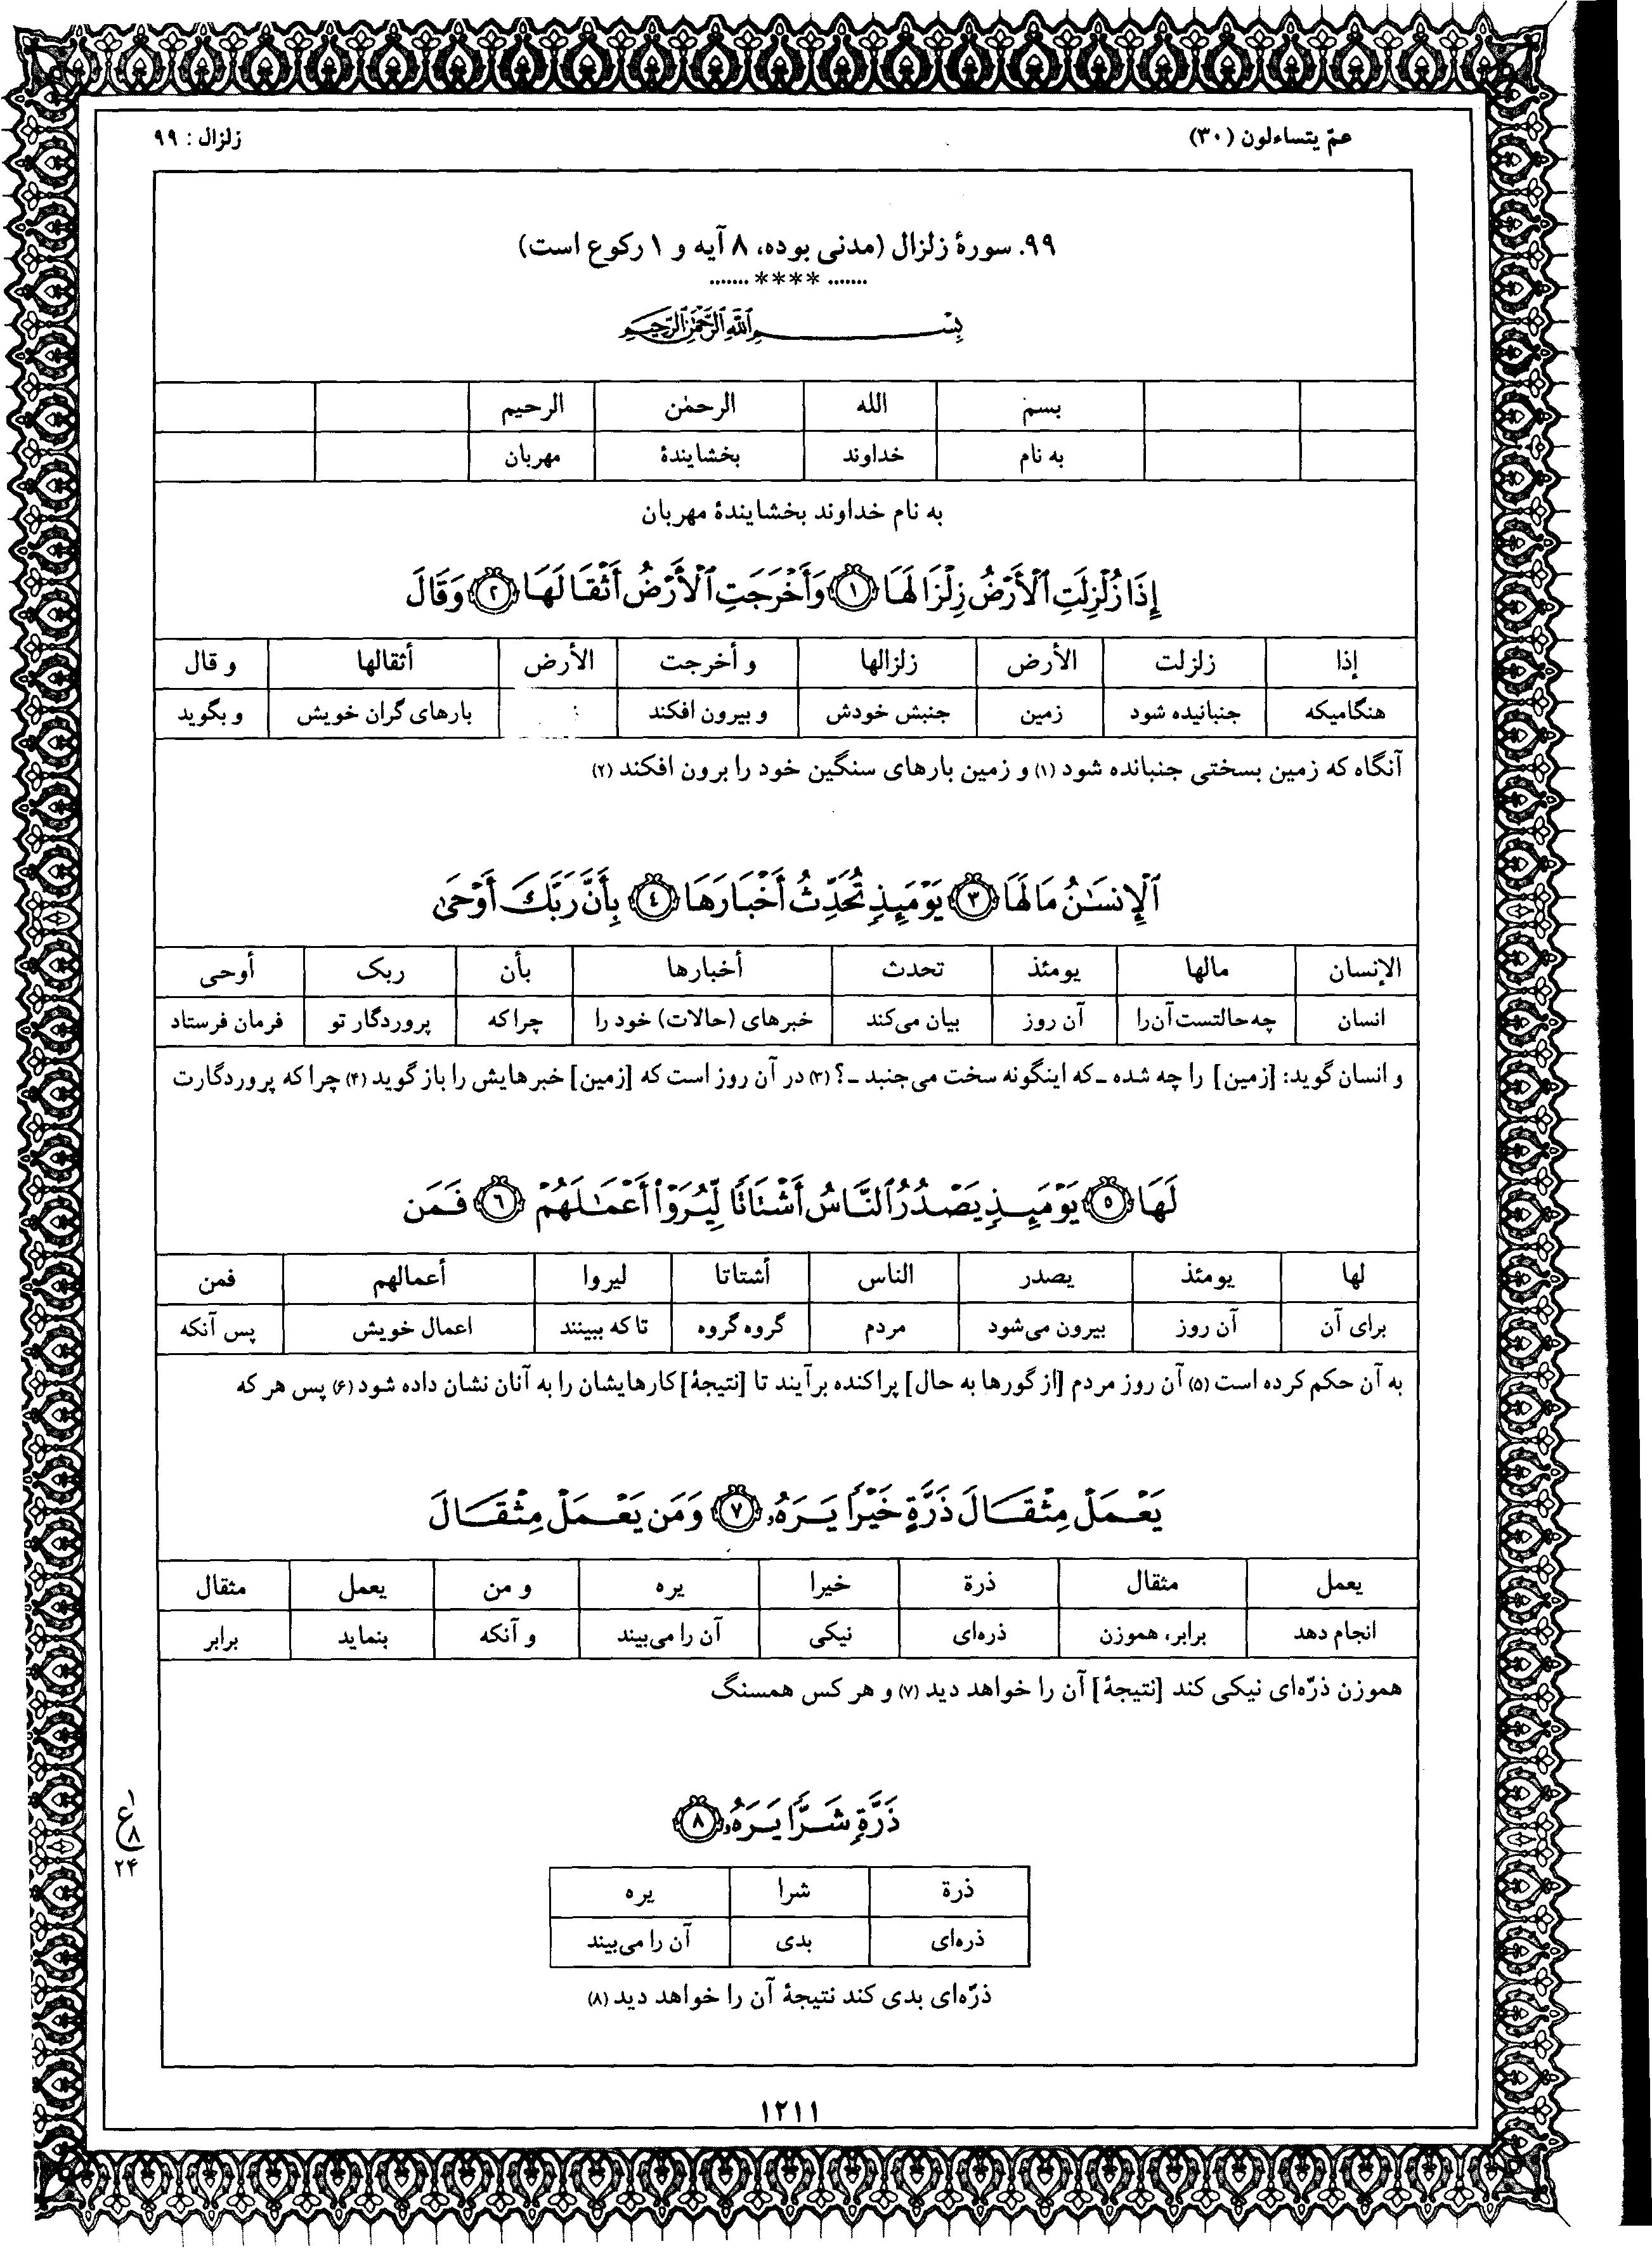 عمّ یتساءلون (۳۰)
زلزال : ۹۹
۹۹. سورۀ زلزال (مدنی بوده، ۸ آیه و ۱ رکوع است)
....... **** .......
بِسْمِ اللَّهِ الرَّحْمَٰنِ الرَّحِيمِ
بسم الله الرحمٰن الرحیم
به نام خداوند بخشایندۀ مهربان
به نام خداوند بخشایندۀ مهربان
إِذَا زُلْزِلَتِ ٱلْأَرْضُ زِلْزَالَهَا ﴿١﴾ وَأَخْرَجَتِ ٱلْأَرْضُ أَثْقَالَهَا ﴿٢﴾ وَقَالَ
إذا زلزلت الأرض زلزالها و أخرجت الأرض أثقالها و قال
هنگامیکه جنبانیده شود زمین جنبش خودش و بیرون افکند بارهای گران خویش و بگوید
آنگاه که زمین بسختی جنبانده شود (۱) و زمین بارهای سنگین خود را برون افکند (۲)
ٱلْإِنسَٰنُ مَا لَهَا ﴿٣﴾ يَوْمَئِذٍ تُحَدِّثُ أَخْبَارَهَا ﴿٤﴾ بِأَنَّ رَبَّكَ أَوْحَىٰ
الإنسان مالها یومئذ تحدث أخبارها بأن ربک أوحی
انسان چه حالتست آن را آن روز بیان می‌کند خبرهای (حالات) خود را چرا که پروردگار تو فرمان فرستاد
و انسان گوید: [زمین] را چه شده ـ که اینگونه سخت می‌جنبد ـ؟ (۳) در آن روز است که [زمین] خبرهایش را باز گوید (۴) چرا که پروردگارت
لَهَا ﴿٥﴾ يَوْمَئِذٍ يَصْدُرُ ٱلنَّاسُ أَشْتَاتًا لِّيُرَوْا۟ أَعْمَٰلَهُمْ ﴿٦﴾ فَمَن
لها یومئذ یصدر الناس أشتاتا لیروا أعمالهم فمن
برای آن آن روز بیرون می‌شود مردم گروه گروه تا که ببینند اعمال خویش پس آنکه
به آن حکم کرده است (۵) آن روز مردم [از گورها به حال] پراکنده برآیند تا [نتیجۀ] کارهایشان را به آنان نشان داده شود (۶) پس هر که
يَعْمَلْ مِثْقَالَ ذَرَّةٍ خَيْرًا يَرَهُۥ ﴿٧﴾ وَمَن يَعْمَلْ مِثْقَالَ
یعمل مثقال ذرة خیرا یره و من یعمل مثقال
انجام دهد برابر، هموزن ذره‌ای نیکی آن را می‌بیند و آنکه بنماید برابر
هموزن ذرّه‌ای نیکی کند [نتیجۀ] آن را خواهد دید (۷) و هر کس همسنگ
ذَرَّةٍ شَرًّا يَرَهُۥ ﴿٨﴾
۱
ع
۸
۲۴
ذرة شرا یره
ذره‌ای بدی آن را می‌بیند
ذرّه‌ای بدی کند نتیجۀ آن را خواهد دید (۸)
۱۲۱۱